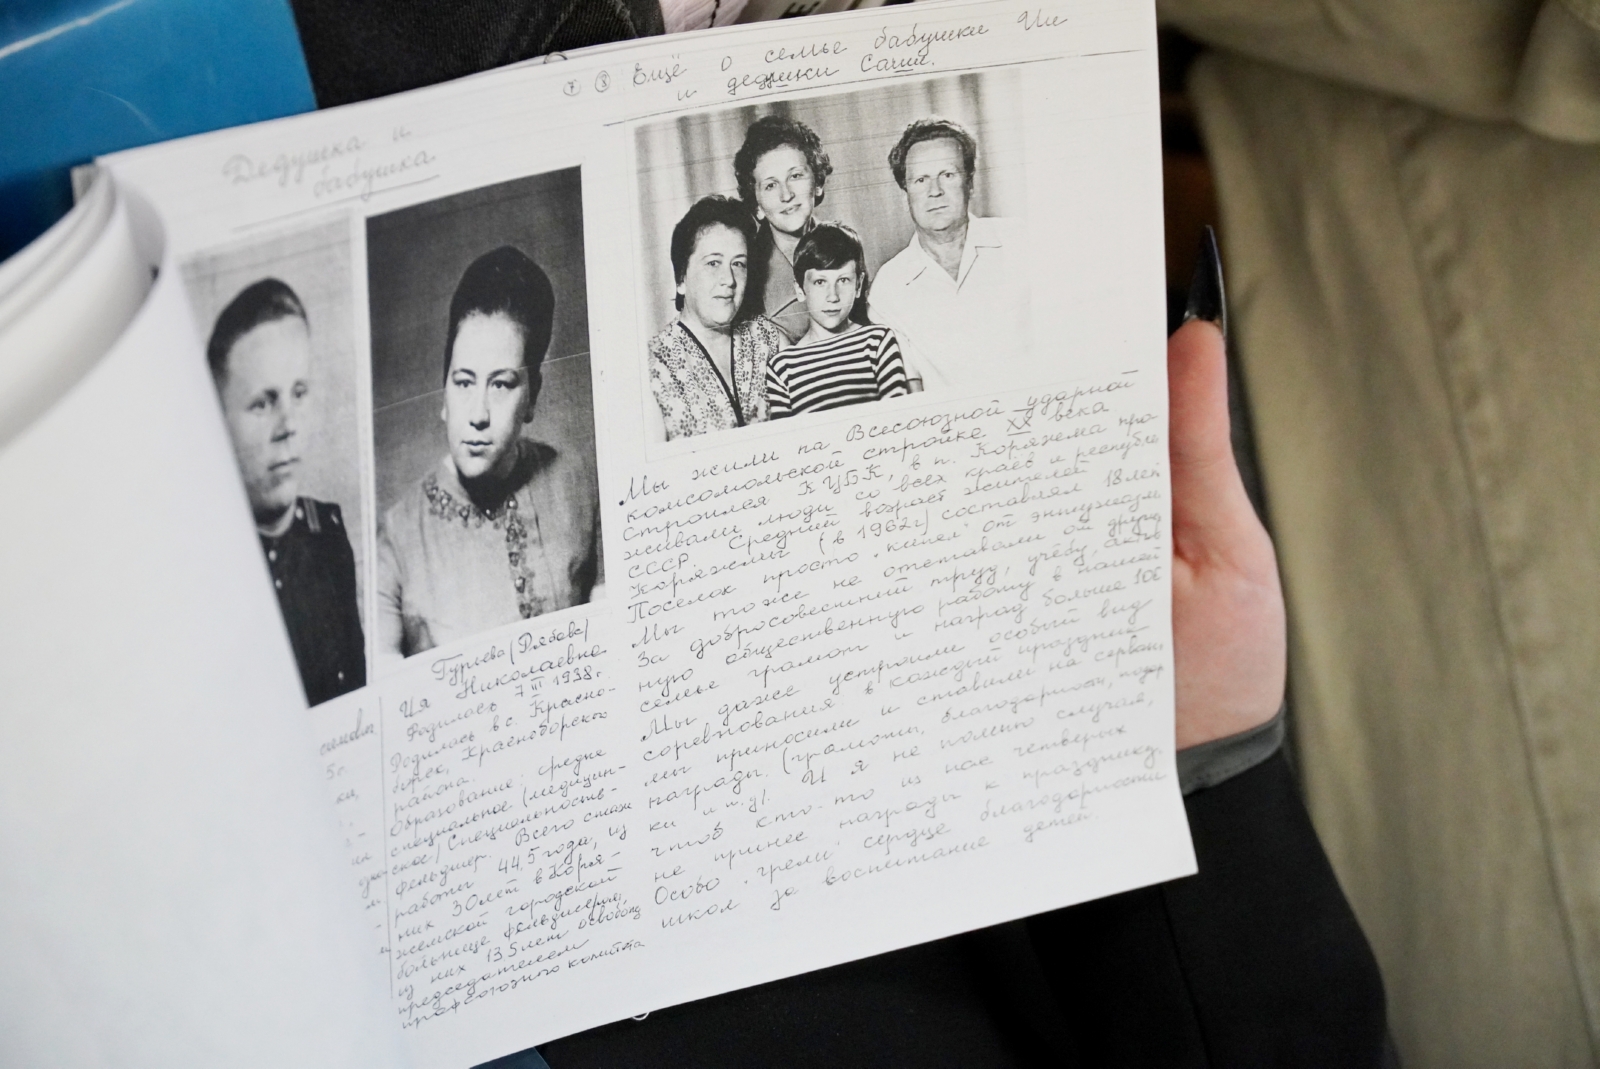 Дедушка и
бабушка
Гурьева (Рябова)
Ия Николаевна
Родилась 7 III 1938г.
Родилась в с. Красно-
района.
Образование: средне
специальное (медицин-
ское). Специальность-
фельдшер. Всего стаж
работы 44,5 года, из
них 30 лет в Коря-
жемской городской
больнице фельдшером,
из них 13,5 лет освобожд
председателем
профсоюзного комитета
7 8 Ещё о семье бабушки Ии
и дедушки Саши.
Мы жили на Всесоюзной ударной
комсомольской стройке XX века
Строился КЦБК, в п. Коряжма про-
живали люди со всех краёв и республик
СССР. Средний возраст жителей
Коряжмы (в 1962г) составлял 18 лет
Поселок просто "кипел" от энтузиазм
Мы тоже не отставали от других
За добросовестный труд, учёбу, актив
ную общественную работу в нашей
семье грамот и наград больше 100
Мы даже устроили особый вид
соревнования в каждый праздник
мы приносили и ставили на сервант
награды. (грамоты, благодарности, подар
ки и т.д). И я не помню случая,
чтоб кто-то из нас четверых
не принес награды к празднику.
Особо "грели" сердце благодарности
школ за воспитание детей.